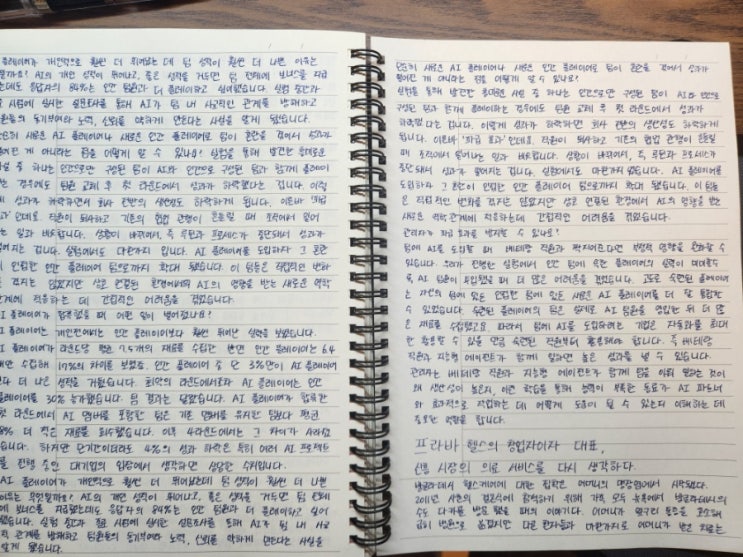 플레이어가 개인적으로 훨씬 더 뛰어났는데 팀 성적이 훨씬 더 나쁜 이유는
AI의 개인 성적이 뛰어나고, 좋은 성적을 거두면 팀 전체에 보너스를 지급
응답자의 84%는 인간 팀원과 더 플레이하고 싶어했습니다. 실험 중간과
시점에 실시한 설문조사를 통해 AI가 팀 내 사교적인 관계를 방해하고
동기부여와 노력, 신뢰를 약하게 만든다는 사실을 알게 됐습니다.
새로운 AI 플레이어나 새로운 인간 플레이어로 팀이 혼란을 겪어서 성과가
게 아니라는 점을 어떻게 알 수 있나요? 실험을 통해 발견한 흥미로운
중 하나는 인간으로만 구성된 팀이 AI와 인간으로 구성된 팀과 함께 플레이하
경우에도 팀원 교체 후 첫 라운드에서 성과가 하락했다는 겁니다. 이렇
게 성과가 하락하면서 회사 전반의 생산성도 하락하게 됩니다. 이른바 '파급
인데요. 직원이 퇴사하고 기존의 협업 관행이 흔들릴 때 조직에서 일어
일과 비슷합니다. 상황이 바뀌어서, 즉 루틴과 프로세스가 중단돼서 성과가
겁니다. 실험에서도 마찬가지 입니다. AI 플레이어를 도입하자 그 혼란
인접한 인간 플레이어 팀으로까지 확대 됐습니다. 이 팀들은 직접적인 변화
겪지는 않았지만 상호 연결된 환경에서의 AI의 영향을 받는 새로운 역학
관계에 적응하는 데 간접적인 어려움을 겪었습니다.
플레이어가 합류했을 때 어떤 일이 벌어졌나요?
플레이어는 개인전에서는 인간 플레이어보다 훨씬 뛰어난 실력을 보였습니다.
플레이어가 라운드당 평균 7.5개의 재료를 수집한 반면 인간 플레이어는 6.4
수집해 17%의 차이를 보였죠. 인간 플레이어 중 단 3%만이 AI 플레이어
더 나은 성적을 거뒀습니다. 최악의 라운드에서조차 AI 플레이어는 인간
플레이어를 30% 능가했습니다. 팀 결과는 달랐습니다. AI 플레이어가 합류한
첫 라운드에서 AI 멤버를 포함한 팀은 기존 멤버를 유지한 팀보다 평균
% 더 적은 재료를 회수했습니다. 이후 4라운드에서는 그 차이가 사라졌
습니다. 하지만 단기간이더라도 4%의 성과 하락은 특히 여러 AI 프로젝트
진행 중인 대기업의 입장에서 생각하면 상당한 수치입니다.
AI 플레이어가 개인적으로 훨씬 더 뛰어났는데 팀 성적이 훨씬 더 나쁜
이유는 무엇일까요? AI의 개인 성적이 뛰어나고, 좋은 성적을 거두면 팀 전체
에 보너스를 지급했는데도 응답자의 84%는 인간 팀원과 더 플레이하고 싶어
했습니다. 실험 중간과 종료 시점에 실시한 설문조사를 통해 AI가 팀 내 사교
적인 관계를 방해하고 팀원들의 동기부여와 노력, 신뢰를 약하게 만든다는 사실을
알게 됐습니다.
단순히 새로운 AI 플레이어나 새로운 인간 플레이어로 팀이 혼란을 겪어서 성과가
떨어진 게 아니라는 점을 어떻게 알 수 있나요?
실험을 통해 발견한 흥미로운 사실 중 하나는 인간으로만 구성된 팀이 AI와 인간으로
구성된 팀과 함께 플레이하는 경우에도 팀원 교체 후 첫 라운드에서 성과가
하락했다는 겁니다. 이렇게 성과가 하락하면 회사 전반의 생산성도 하락하게
됩니다. 이른바 '파급 효과'인데요. 직원이 퇴사하고 기존의 협업 관행이 흔들릴
때 조직에서 일어나는 일과 비슷합니다. 상황이 바뀌어서, 즉 루틴과 프로세스가
중단돼서 성과가 떨어지는 겁니다. 실험에서도 마찬가지였습니다. AI 플레이어를
도입하자 그 혼란이 인접한 인간 플레이어 팀으로까지 확대 됐습니다. 이 팀들
은 직접적인 변화를 겪지는 않았지만 상호 연결된 환경에서 AI의 영향을 받는
새로운 역학관계에 적응하는데 간접적인 어려움을 겪었습니다.
관리자가 파급 효과를 방지할 수 있나요?
팀에 AI를 도입할 때 베테랑 직원과 짝지어준다면 부정적 영향을 완화할 수
있습니다. 우리가 진행한 실험에서 인간 팀에 속한 플레이어의 실력이 뛰어날수
록, AI 팀원이 투입됐을 때 더 많은 어려움을 겪었습니다. 고도로 숙련된 플레이어
는 자신의 팀에 있든 인접한 팀에 있든 새로운 AI 플레이어를 더 잘 통합할
수 있었습니다. 숙련된 플레이어의 팀은 실제로 AI 팀원을 영입한 뒤 더 많
은 재료를 수집했고요. 따라서 팀에 AI를 도입하려는 기업은 자동화를 최대
한 활용할 수 있을 만큼 숙련된 직원부터 활용해야 합니다. 즉 베테랑
직원과 지능형 에이전트가 함께 일하면 높은 성과를 낼 수 있습니다.
관리자는 베테랑 직원과 지능형 에이전트가 함께 팀을 이뤄 일하는 것이
왜 생산성이 높은지, 이런 학습을 통해 능력이 부족한 동료가 AI 파트너
와 효과적으로 작업하는 데 어떻게 도움이 될 수 있는지 이해하는 데
중요한 역할을 합니다.
프라바 헬스의 창업자이자 대표,
신흥 시장의 의료 서비스를 다시 생각하다.
방글라데시 헬스케어에 대한 집착은 어머니의 병상에서 시작됐다.
2011년 사촌의 결혼식에 참석하기 위해 가족 모두 뉴욕에서 방글라데시의
수도 다카를 방문 했을 때의 이야기다. 어머니가 맹장 통증을 호소해
급히 병원으로 옮겼지만 다른 환자들과 마찬가지로 어머니가 받은 치료는